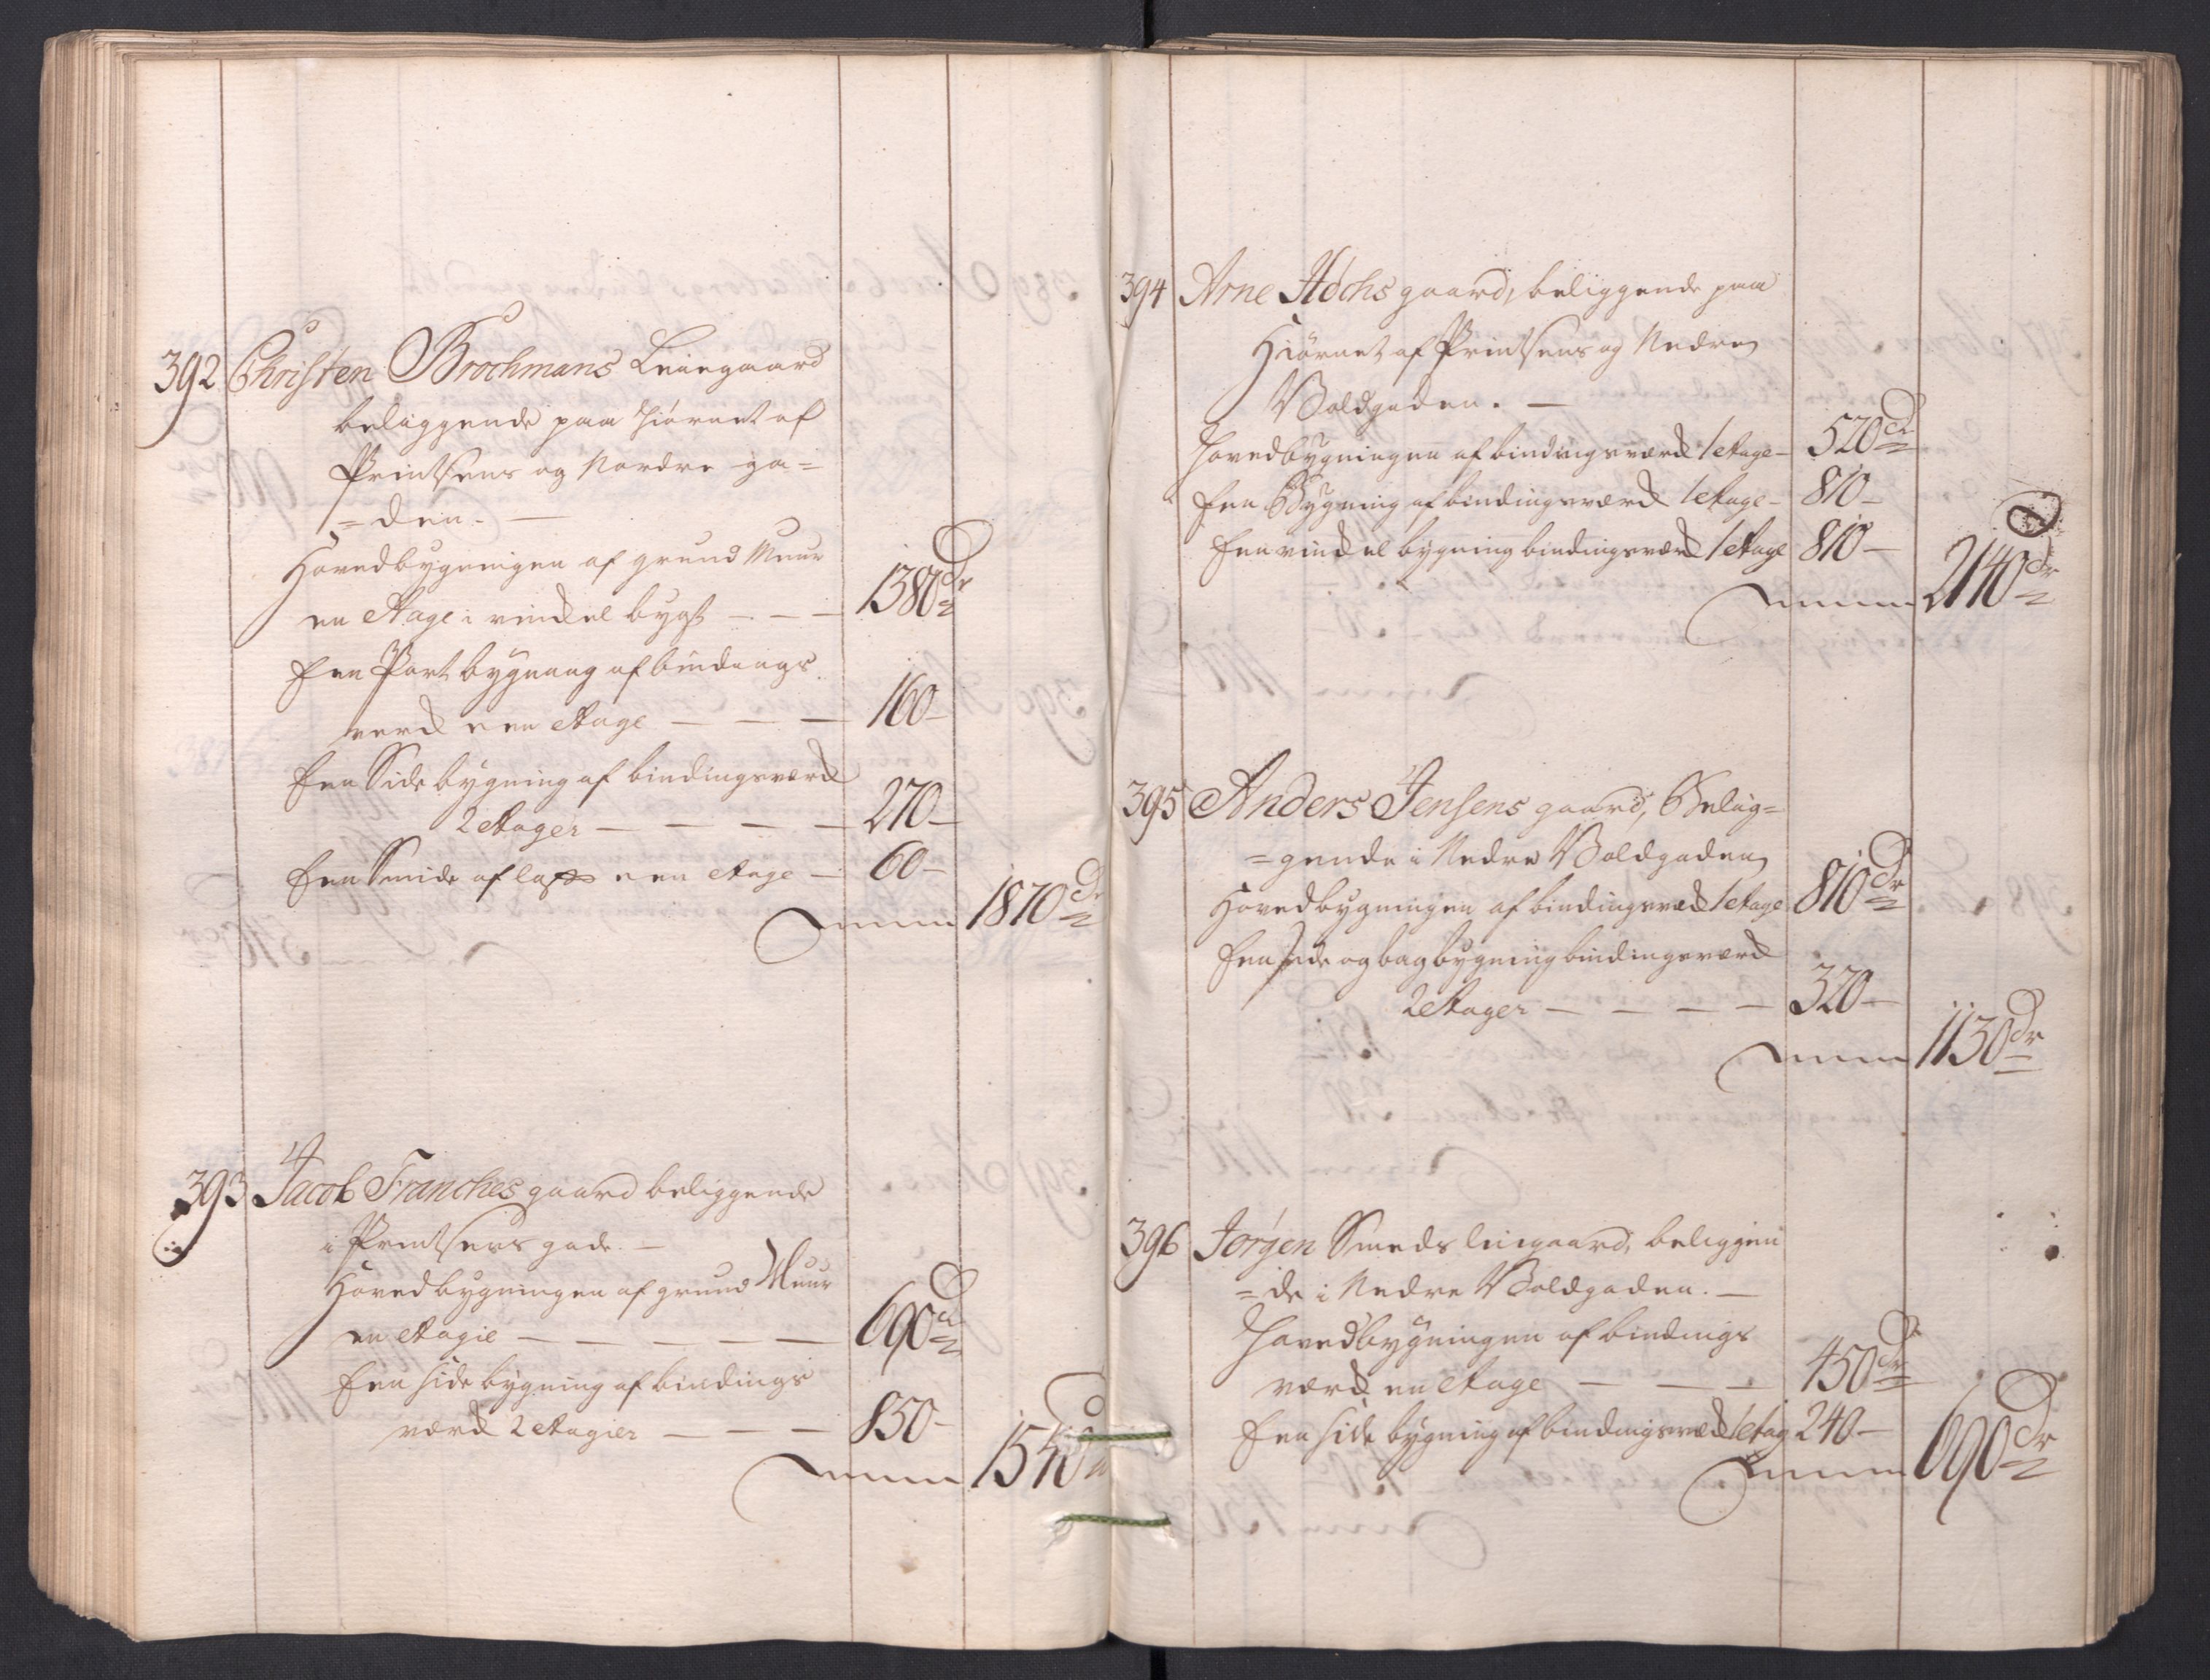 392 Christen Brochmans Leiegaard
beliggende paa Hiørnet af
Printsens og Nordre ga=
=den. —
Hovedbygningen af grund Muur
en Etage i vindel bygt — — — 1380 dr
Een Port bygning af bindings
verck een Etage — — — 160 –
Een Side bygning af bindingsværck
2 Etager — — — — 270 –
Een Smide af laft een Etage — 60 –
Summa 1870 dr
393 Jacob Franches gaard beliggende
i Printsens gade. —
Hovedbygningen af grund Muur
en Etagie — — — — — 690 dr
Een side bygning af bindings
værck 2 Etagier — — — 850 –
Summa 1540 dr
394 Arne Hochs gaard, beliggende paa
Hiørnet af Printsens og Nedre
Voldgaden. —
Hovedbygningen af bindingsværck 1 Etage – 520 dr
Een Bygning af bindingsværck 1 Etage – 810 –
Een vindel bygning bindingsværck 1 Etage 810 –
Summa 2140 dr
395 Anders Jensens gaard, Belig=
=gende i Nedre Voldgaden
Hovedbygningen af bindingsværck 1 Etage 810 dr
Een side og bag bygning bindingsværck
2 Etager — — — — 320 –
Summa 1130 dr
396 Jørgen Smeds leiegaard, beliggen
=de i Nedre Voldgaden. —
Hovedbygningen af bindings
værck en Etage — — — 450 dr
Een side bygning af bindingsværck 1 Etag 240 –
Summa 690 dr